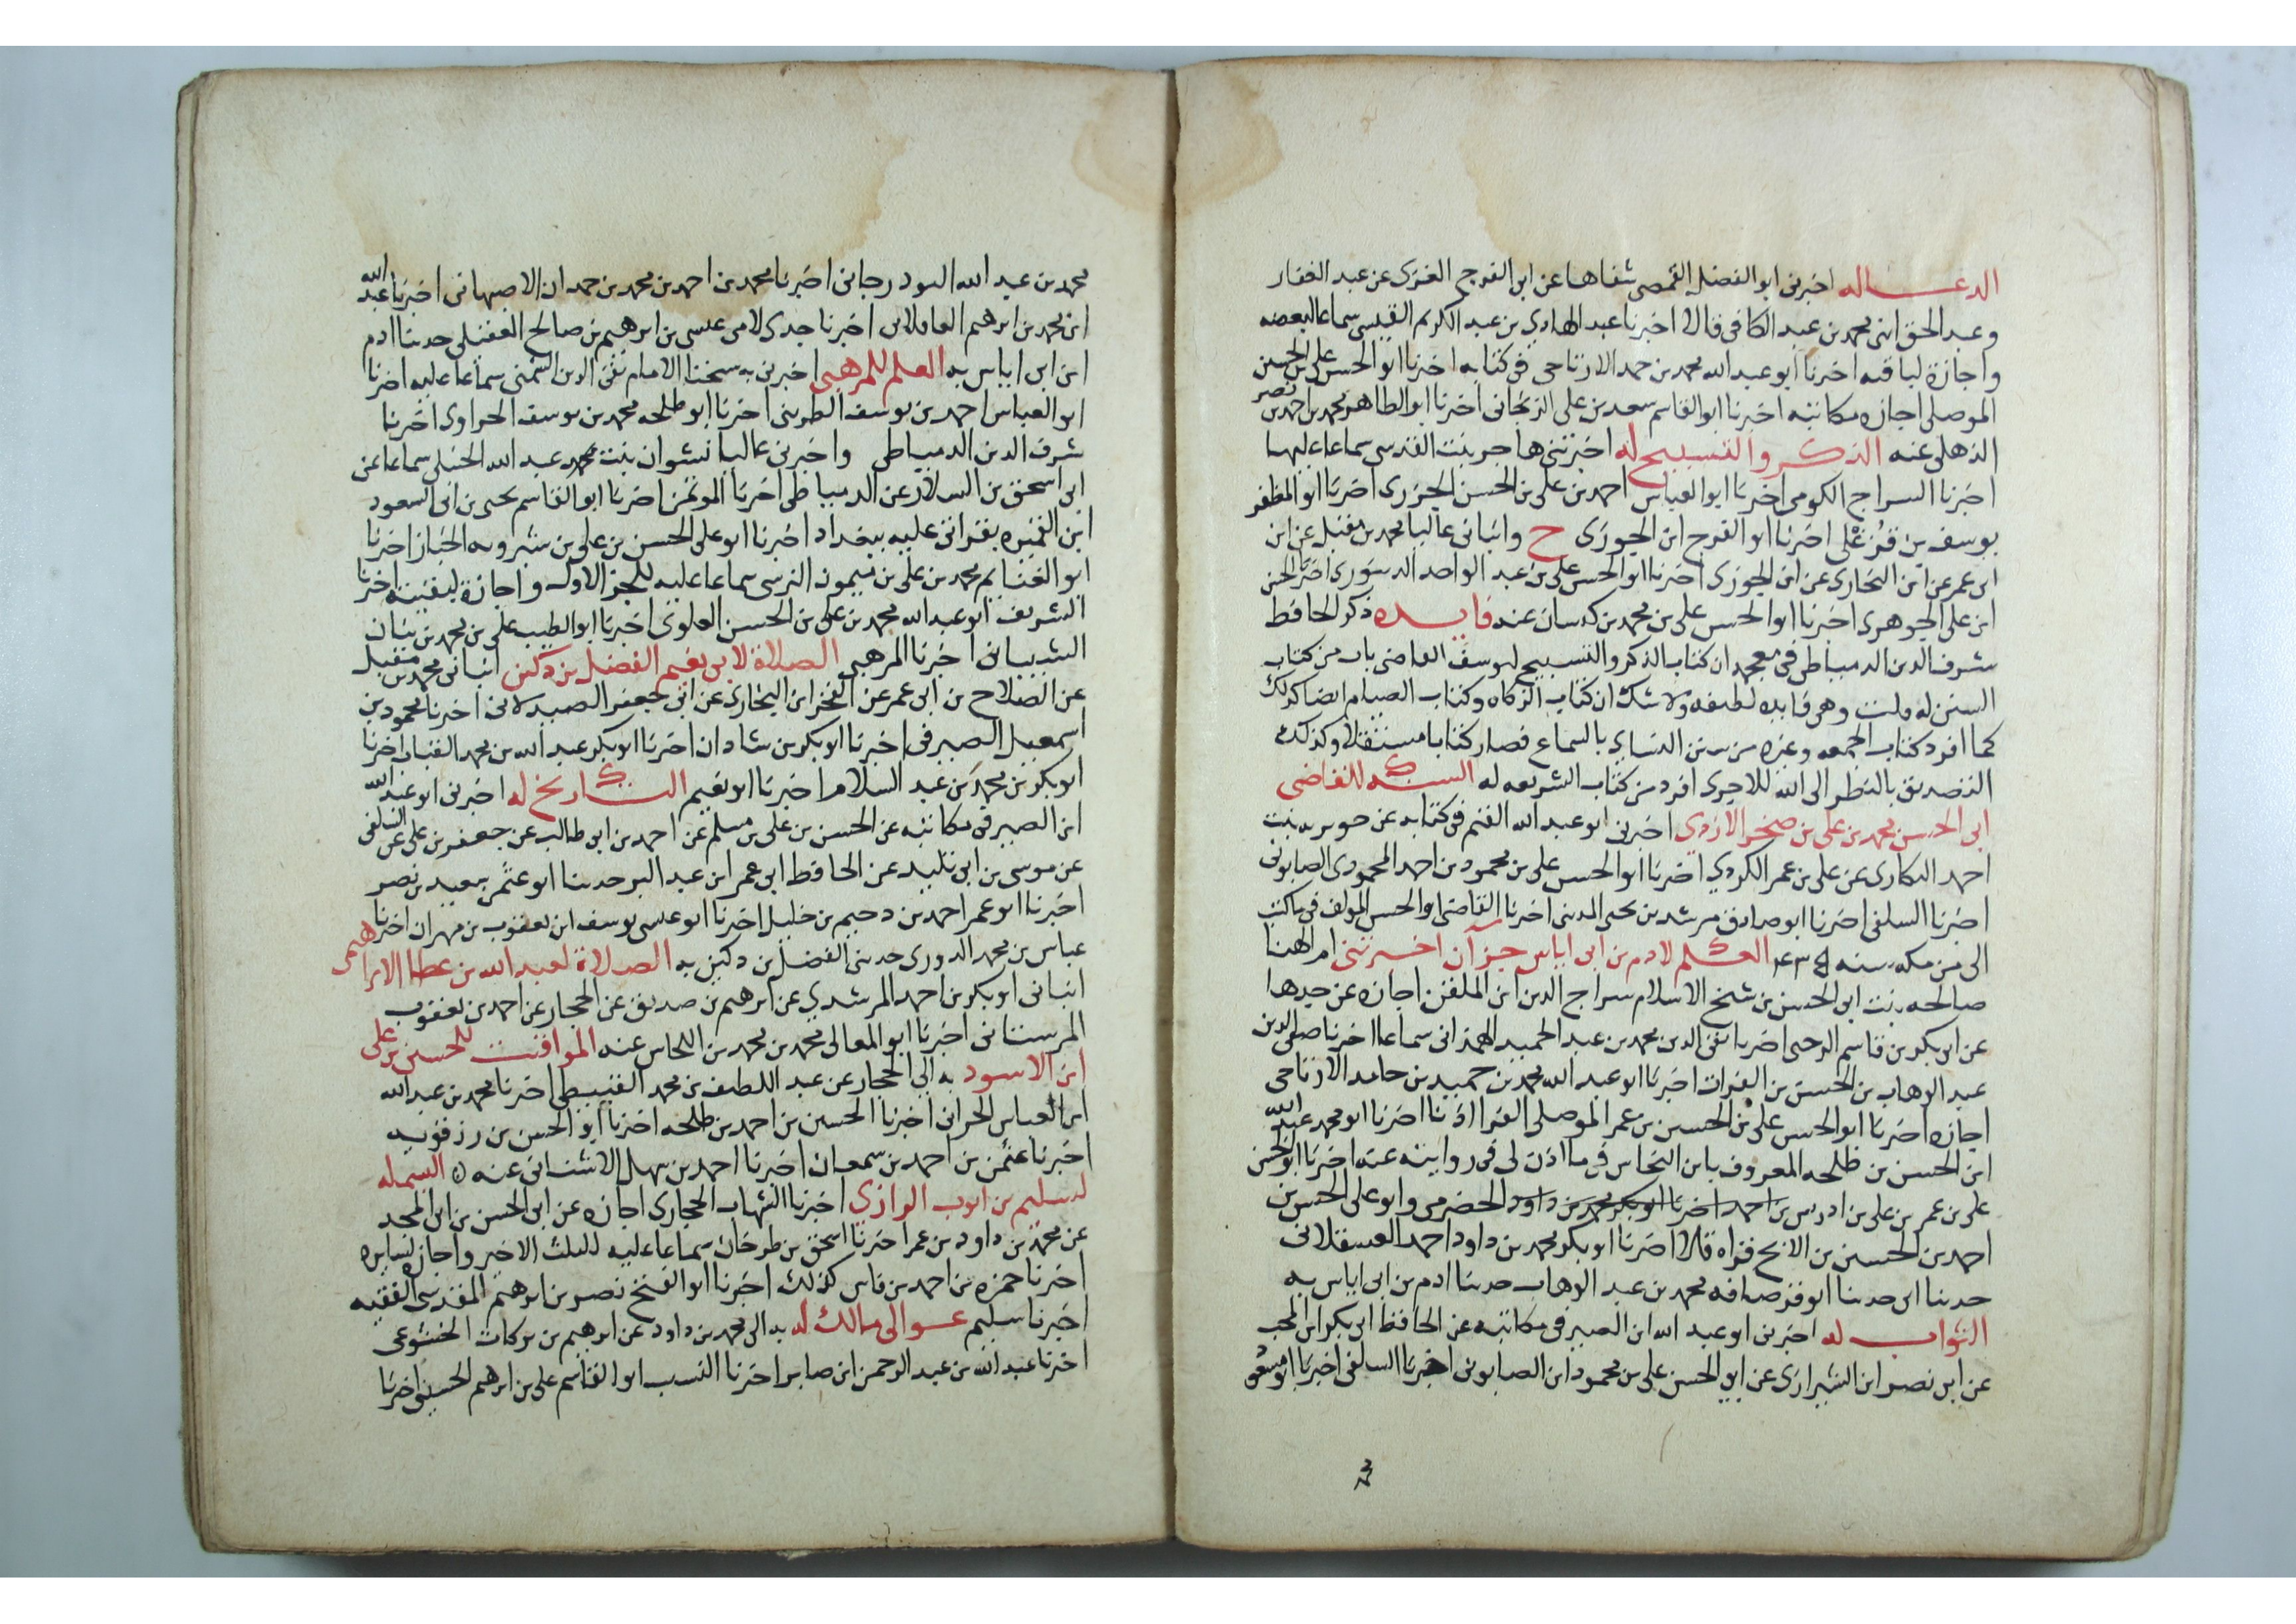 الدعا له اخبرنى ابو الفضل القمصى شفاها عن ابى الفرج الغزى عن عبد الغفار
وعبد الحق ابنى محمد بن عبد الكافى قالا اخبرنا عبد الهادى بن عبد الكريم القيسى سماعا لبعضه
واجازة لباقيه اخبرنا ابو عبد الله محمد بن حمد الارتاحى فى كتابه اخبرنا ابو الحسن على بن الحسين
الموصلى اجازه مكاتبة اخبرنا ابو القاسم سعد بن على الزنجانى اخبرنا ابو الطاهر محمد بن احمد بن نصر
الذهلى عنه الذكر والتسبيح له اخبرتنى هاجر بنت القدسى سماعا عليها
اخبرنا السراج الكومى اخبرنا ابو العباس احمد بن على بن الحسن الجزرى اخبرنا ابو المظفر
يوسف بن قزغلى اخبرنا ابو الفرج ابن الجوزى ح وانبانى عاليا محمد بن مقبل عن ابن
ابى عمر عن ابن البخارى عن ابن الجوزى اخبرنا ابو الحسن على بن عبد الواحد الدينورى اخبرنا الحسن
ابن على الجوهرى اخبرنا ابو الحسن على بن محمد بن كيسان عنه فايده ذكر الحافظ
شرف الدين الدمياطى فى معجمه ان كتاب الذكر والتسبيح ليوسف القاضى باب من كتاب
السنن له قلت وهى فايده لطيفه ولا شك ان كتاب الزكاه وكتاب الصيام ايضا كذلك
كما افرد كتاب الجمعه وغيره من سنن النساى بالسماع فصار كتابا مستقلا وكذلك
التصديق بالنظر الى الله للاجرى افرد من كتاب الشريعه له السنه للقاضى
ابى الحسن محمد بن على بن صخر الازدى اخبرنى ابو عبد الله القيم فى كتابه عن جويريه بنت
احمد الهكارى عن على بن عمر الكردى اخبرنا ابو الحسن على بن محمود بن احمد المحمودى الصابونى
اخبرنا السلفى اخبرنا ابو صادق مرشد بن يحيى المدينى اخبرنا القاضى ابو الحسن المولف فى ما كتب
الى من مكه سنه ٤٣٤ العلم لادم بن ابى اياس جزان اخبرتنى ام الهنا
صالحه بنت ابى الحسن بن شيخ الاسلام سراج الدين ابن الملقن اجازه عن جدها
عن ابى بكر بن قاسم الرحبى اخبرنا تقى الدين محمد بن عبد الحميد الهمدانى سماعا اخبرنا صفى الدين
عبد الوهاب بن الحسن بن الفرات اخبرنا ابو عبد الله محمد بن حميد بن حامد الارتاحى
اجازه اخبرنا ابو الحسن على بن الحسين بن عمر الموصلى الفرا اذنا اخبرنا ابو محمد عبد الله
ابن الحسن بن طلحه المعروف بابن النخاس فى ما اذن لى فى روايته عنه اخبرنا ابو الحسن
على بن عمر بن على بن ادريس بن احمد اخبرنا ابو بكر محمد بن داود الحضرمى وابو على الحسن بن
احمد بن الحسين بن الانج قراه قالا اخبرنا ابو بكر محمد بن داود احمد العسقلانى
حدثنا ابى حدثنا ابو قرصافه محمد بن عبد الوهاب حدثنا ادم بن ابى اياس به
الثواب له اخبرنى ابو عبد الله ابن الصيرفى مكاتبه عن الحافظ ابى بكر ابن المحب
عن ابى نصر ابن الشيرازى عن ابى الحسن على بن محمود ابن الصابونى اخبرنا السلفى اخبرنا ابو مسعود
محمد بن عبد الله السوذرجانى اخبرنا محمد بن احمد بن محمد بن حمدان الاصبهانى اخبرنا عبد الله
ابن محمد بن ابرهيم اخبرنا جدى لامى عيسى بن ابرهيم بن صالح العقيلى حدثنا ادم
ابن ابى اياس به العلم للمرهبى اخبرنى به شيخنا الامام تقى الدين الشمنى سماعا عليه اخبرنا
ابو العباس احمد بن يوسف الطرينى اخبرنا ابو طلحه محمد بن يوسف الحراوى اخبرنا
شرف الدين الدمياطى واخبرنى عاليا نشوان بنت محمد عبد الله الحنبلى سماعا عن
ابى اسحق بن السلار عن الدمياطى اخبرنا الموتمن اخبرنا ابو القاسم يحيى بن ابى السعود
ابن القميره بقراتى عليه ببغداد اخبرنا ابو على الحسن بن على بن شيرويه الخباز اخبرنا
ابو الغنايم محمد بن على بن ميمون النرسى سماعا عليه للجز الاول واجازة لبقيته اخبرنا
الشريف ابو عبد الله محمد بن على بن الحسن العلوى اخبرنا ابو الطيب على بن محمد بن بنان
الشيبانى اخبرنا المرهبى الصلاة لابى نعيم الفضل بن دكين انبانى محمد بن مقبل
عن الصلاح بن ابى عمر عن الفخر ابن البخارى عن ابى جعفر الصيدلانى اخبرنا محمود بن
اسمعيل الصيرفى اخبرنا ابو بكر بن شاذان اخبرنا ابو بكر عبد الله بن محمد القباب اخبرنا
ابو بكر بن محمد بن عبد السلام اخبرنا ابو نعيم التاريخ له اخبرنى ابو عبد الله
ابن الصيرفى مكاتبه عن الحسن بن على بن مسلم عن احمد بن ابى طالب عن جعفر بن على عن السلفى
عن موسى بن ابى تليد عن الحافظ ابى عمر ابن عبد البر حدثنا ابو عثمن سعيد بن نصر
اخبرنا ابو عمر احمد بن دحيم بن خليل اخبرنا ابو عيسى يوسف ابن يعقوب بن مهران اخبرنا
عباس بن محمد الدورى حدثنى الفضل بن دكين به الصلاة لعبد الله بن عطا الابراهيمى
انبانى ابو بكر بن احمد المرشدى عن ابرهيم بن صديق عن الحجار عن احمد بن يعقوب
المرستانى اخبرنا ابو المعالى محمد بن محمد بن اللحاس عنه المواقيت للحسين بن على
ابن الاسود به الى الحجار عن عبد اللطيف بن محمد القبيطى اخبرنا محمد بن عبد الله
ابن العباس الحرانى اخبرنا الحسين بن احمد بن طلحه اخبرنا ابو الحسن بن رزقويه
اخبرنا عثمن بن احمد بن سمعان اخبرنا احمد بن سهل الاشنانى عنه ه البسمله
لسليم بن ايوب الرازى اخبرنا الشهاب الحجازى اجازه عن ابى الحسن بن ابى المجد
عن محمد بن داود بن عمر اخبرنا اسحق بن طرخان سماعا عليه للثلث الاخير واجازه لسايره
اخبرنا حمزه بن احمد بن فاس كذلك اخبرنا ابو الفتح نصر بن ابرهيم المقدسى الفقيه
اخبرنا سليم عوالى مالك له به الى محمد بن داود عن ابرهيم بن بركات الخشوعى
اخبرنا عبد الله بن عبد الرحمن ابن صابر اخبرنا النسيب ابو القاسم على بن ابرهيم الحسينى اخبرنا